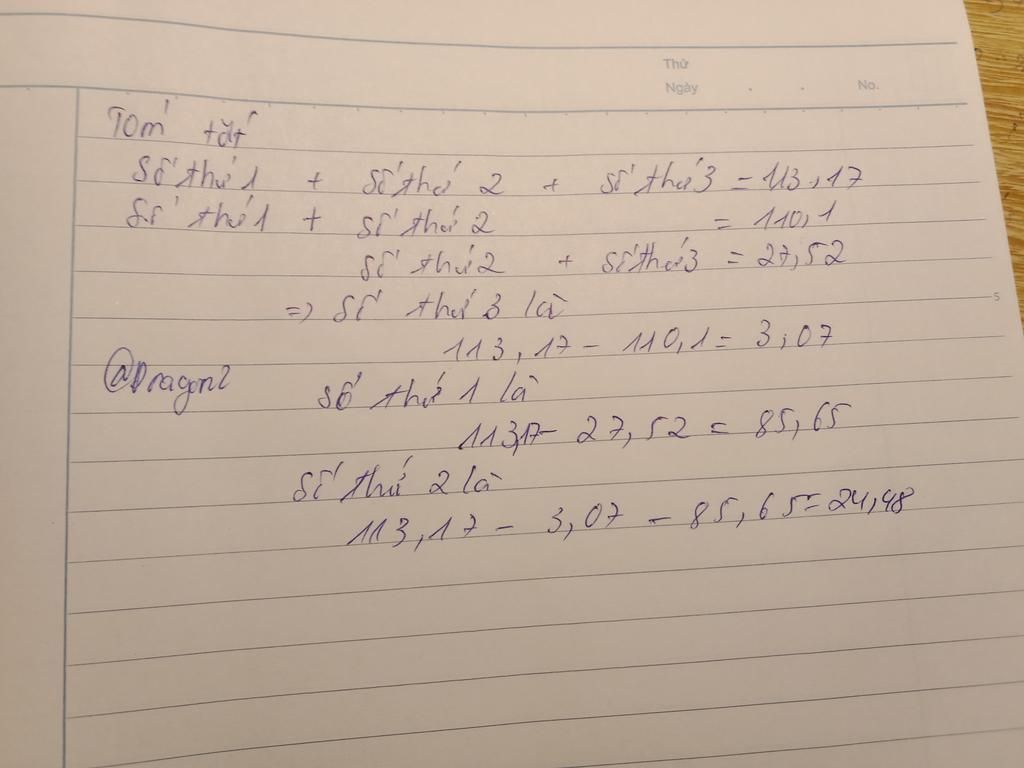 Thứ
Ngày . . No.
Tóm tắt
Số thứ 1 + Số thứ 2 + Số thứ 3 = 113,17
Số thứ 1 + Số thứ 2 = 110,1
Số thứ 2 + Số thứ 3 = 27,52
5
=> Số thứ 3 là
113,17 - 110,1 = 3,07
@Dragon2
Số thứ 1 là
113,17 - 27,52 = 85,65
Số thứ 2 là
113,17 - 3,07 - 85,65 = 24,48